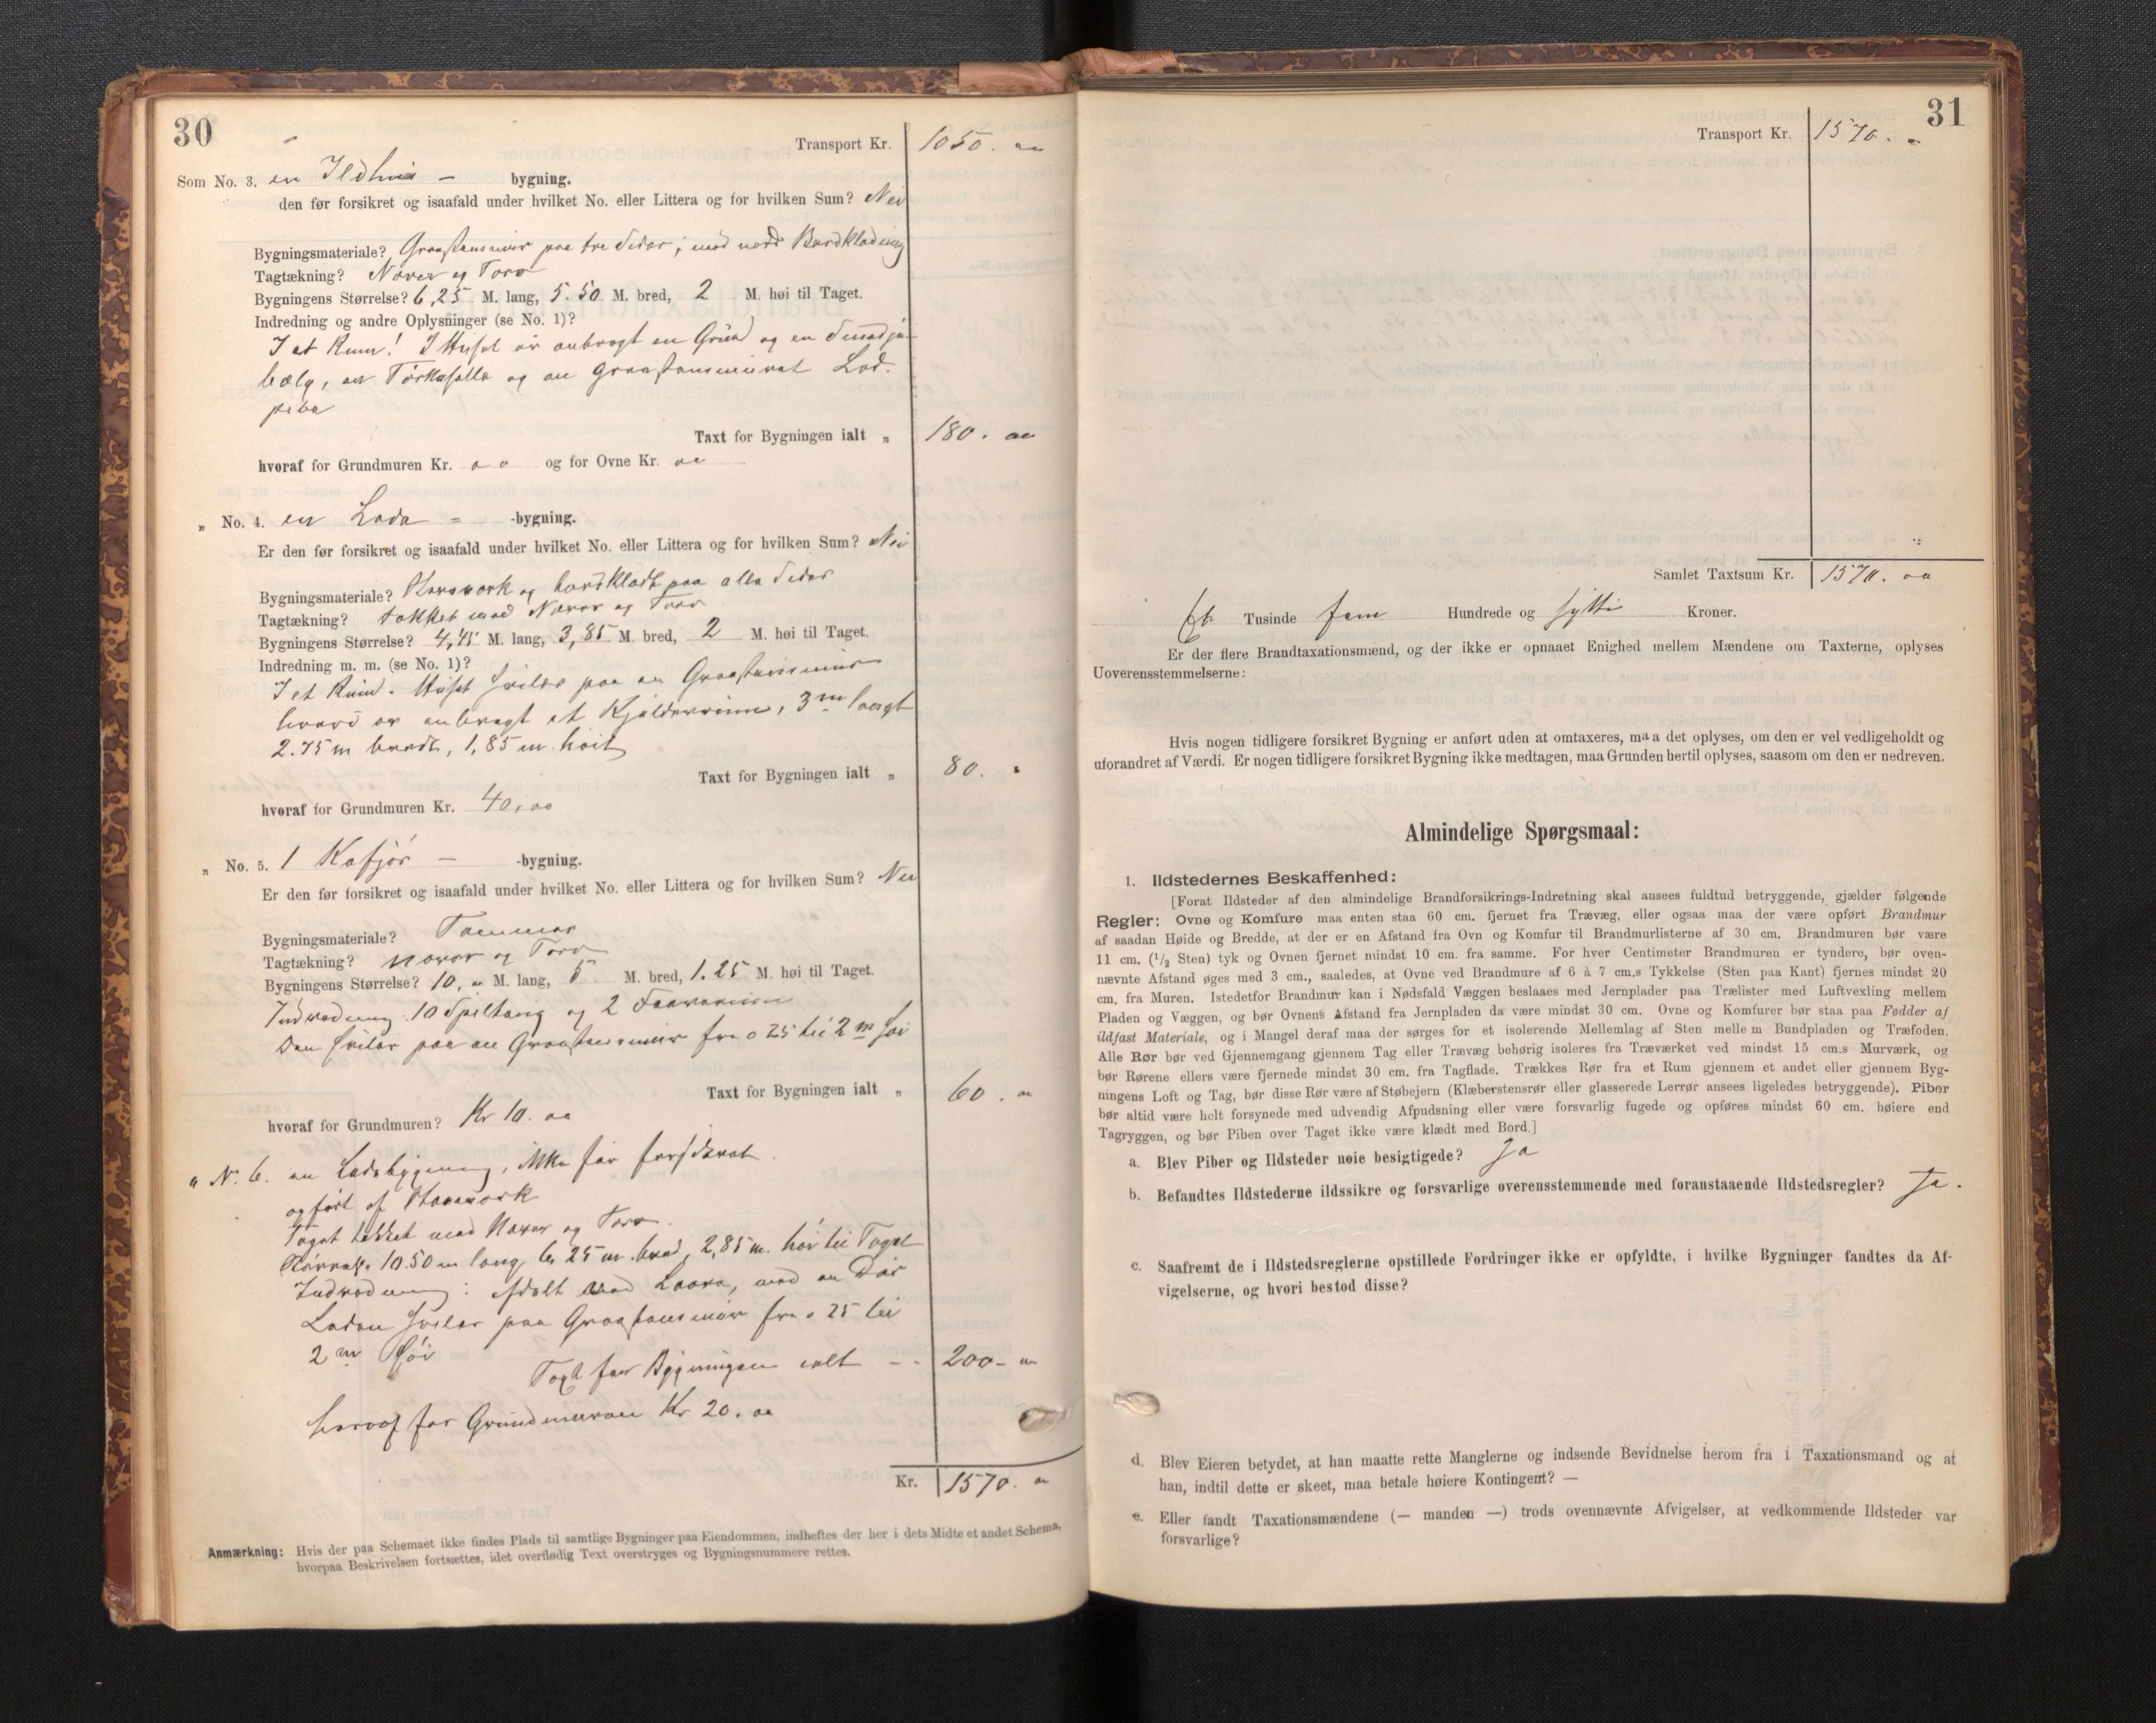 30
Transport Kr. 1050. "
Som No. 3. en Ildhus — bygning.
den før forsikret og isaafald under hvilket No. eller Littera og for hvilken Sum? Nei
Bygningsmateriale? Graastensmur paa tre Sider, mod nord Bordklædning
Tagtækning? Næver og Torv
Bygningens Størrelse? 6,25 M. lang, 5.50 M. bred, 2 M. høi til Taget.
Indredning og andre Oplysninger (se No. 1)?
I et Rum! I Huset er anbragt en Grue og en Smedje-
bælg, en Tørkehelle og en Graastensmuret Lod-
pibe
Taxt for Bygningen ialt „ 180. "
hvoraf for Grundmuren Kr. " " og for Ovne Kr. "
„ No. 4. en Lade = -bygning.
Er den før forsikret og isaafald under hvilket No. eller Littera og for hvilken Sum? Nei
Bygningsmateriale? Stavverk og bordklædt paa alle Sider
Tagtækning? tækket med Næver og Torv
Bygningens Størrelse? 4,75 M. lang, 3,85 M. bred, 2 M. høi til Taget.
Indredning m. m. (se No. 1)?
I et Rum. Huset hviler paa en Graastensmur
hvori er anbragt et Kjælderrum, 3 m langt
2.75 m bredt, 1,85 m. høit
Taxt for Bygningen ialt „ 80. "
hvoraf for Grundmuren Kr. 40. "
„ No. 5. 1 Kofjøs — -bygning.
Er den før forsikret og isaafald under hvilket No. eller Littera og for hvilken Sum? Nei
Bygningsmateriale? Tømmer
Tagtækning? Næver og Torv
Bygningens Størrelse? 10, " M. lang, 5 M. bred, 1.25 M. høi til Taget.
Indredning: 10 Spiltaug og 2 Faarerum
Den hviler paa en Graastensmur fra 0 25 til 2 m høi
Taxt for Bygningen ialt „ 60. "
hvoraf for Grundmuren? Kr 10. "
„ N. 6. en Ladebygning, ikke før forsikret.
opført af Stavverk
Taget tækket med Næver og Torv.
Størrelse 10.50 m lang, 6,25 m. bred, 2,85 m. høi til Taget
Indredning: afdelt med Laave, med en Dør
Laden hviler paa Graastensmur fra 0 25 til
2 m høi
Taxt for Bygningen ialt — 200- "
hvoraf for Grundmuren Kr 20. "
Kr. 1570. "
Anmærkning: Hvis der paa Schemaet ikke findes Plads til samtlige Bygninger paa Eiendommen, indheftes der her i dets Midte et andet Schema,
hvorpaa Beskrivelsen fortsættes, idet overflødig Text overstryges og Bygningsnummere rettes.
31
Transport Kr. 1570. "
Samlet Taxtsum Kr. 1570. "
Et Tusinde fem Hundrede og sytti Kroner.
Er der flere Brandtaxationsmænd, og der ikke er opnaaet Enighed mellem Mændene om Taxterne, oplyses
Uoverensstemmelserne:
Hvis nogen tidligere forsikret Bygning er anført uden at omtaxeres, maa det oplyses, om den er vel vedligeholdt og
uforandret af Værdi. Er nogen tidligere forsikret Bygning ikke medtagen, maa Grunden hertil oplyses, saasom om den er nedreven.
Almindelige Spørgsmaal:
1. Ildstedernes Beskaffenhed:
[Forat Ildsteder af den almindelige Brandforsikrings-Indretning skal ansees fuldtud betryggende, gjælder følgende
Regler: Ovne og Komfure maa enten staa 60 cm. fjernet fra Trævæg, eller ogsaa maa der være opført Brandmur
af saadan Høide og Bredde, at der er en Afstand fra Ovn og Komfur til Brandmurlisterne af 30 cm. Brandmuren bør være
11 cm. (1/2 Sten) tyk og Ovnen fjernet mindst 10 cm. fra samme. For hver Centimeter Brandmuren er tyndere, bør oven-
nævnte Afstand øges med 3 cm., saaledes, at Ovne ved Brandmure af 6 à 7 cm.s Tykkelse (Sten paa Kant) fjernes mindst 20
cm. fra Muren. Istedetfor Brandmur kan i Nødsfald Væggen beslaaes med Jernplader paa Trælister med Luftvexling mellem
Pladen og Væggen, og bør Ovnens Afstand fra Jernpladen da være mindst 30 cm. Ovne og Komfurer bør staa paa Fødder af
ildfast Materiale, og i Mangel deraf maa der sørges for et isolerende Mellemlag af Sten mellem Bundpladen og Træfoden.
Alle Rør bør ved Gjennemgang gjennem Tag eller Trævæg behørig isoleres fra Træværket ved mindst 15 cm.s Murværk, og
bør Rørene ellers være fjernede mindst 30 cm. fra Tagflade. Trækkes Rør fra et Rum gjennem et andet eller gjennem Byg-
ningens Loft og Tag, bør disse Rør være af Støbejern (Klæberstensrør eller glasserede Lerrør ansees ligeledes betryggende). Piber
bør altid være helt forsynede med udvendig Afpudsning eller være forsvarlig fugede og opføres mindst 60 cm. høiere end
Tagryggen, og bør Piben over Taget ikke være klædt med Bord.]
a. Blev Piber og Ildsteder nøie besigtigede? Ja
b. Befandtes Ildstederne ildssikre og forsvarlige overensstemmende med foranstaaende Ildstedsregler? Ja.
c. Saafremt de i Ildstedsreglerne opstillede Fordringer ikke er opfyldte, i hvilke Bygninger fandtes da Af-
vigelserne, og hvori bestod disse?
d. Blev Eieren betydet, at han maatte rette Manglerne og indsende Bevidnelse herom fra i Taxationsmand og at
han, indtil dette er skeet, maa betale høiere Kontingent? —
e. Eller fandt Taxationsmændene (— manden —) trods ovennævnte Afvigelser, at vedkommende Ildsteder var
forsvarlige?